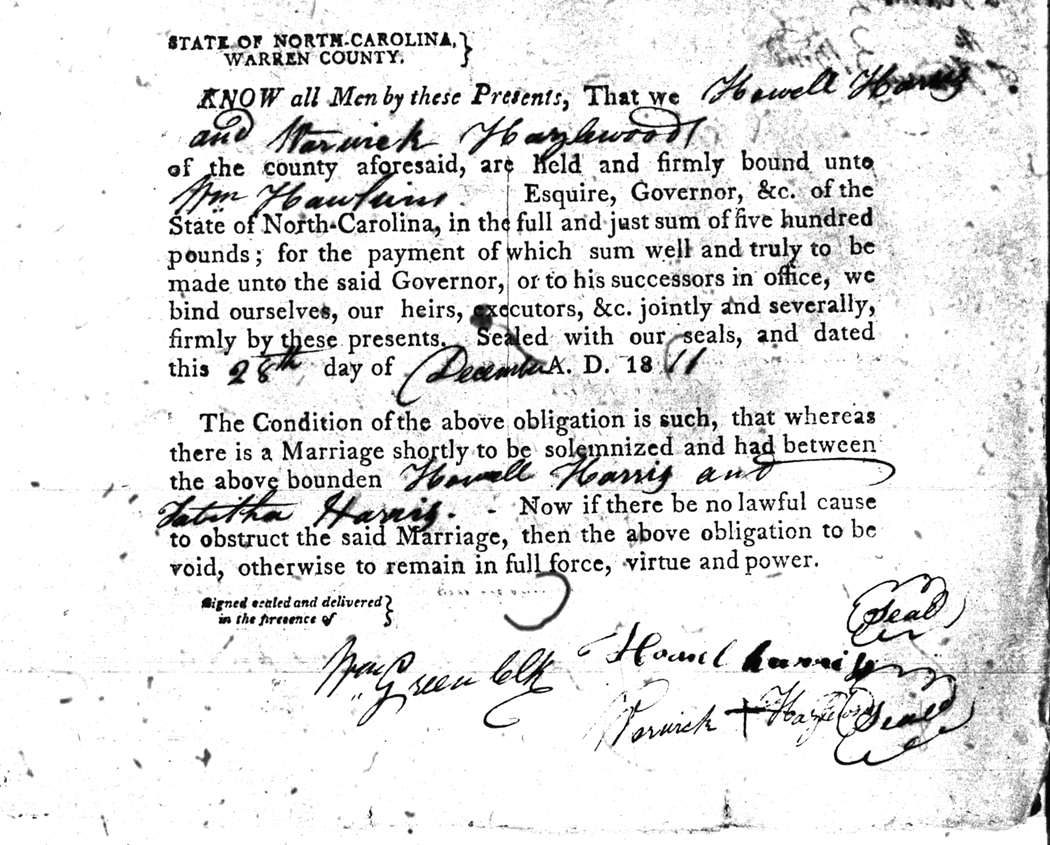 STATE OF NORTH-CAROLINA,
WARREN COUNTY.
KNOW all Men by these Presents, That we Howell Harris
and Warwick Hazlewood
of the county aforesaid, are held and firmly bound unto
Wm Hawkins. Esquire, Governor, &c. of the
State of North-Carolina, in the full and just sum of five hundred
pounds; for the payment of which sum well and truly to be
made unto the said Governor, or to his successors in office, we
bind ourselves, our heirs, executors, &c. jointly and severally,
firmly by these presents. Sealed with our seals, and dated
this 28th day of December A. D. 1811
The Condition of the above obligation is such, that whereas
there is a Marriage shortly to be solemnized and had between
the above bounden Howell Harris and
Tabitha Harris. - Now if there be no lawful cause
to obstruct the said Marriage, then the above obligation to be
void, otherwise to remain in full force, virtue and power.
Signed sealed and delivered
in the presence of
(Seal)
Wm Green Clk
Howel harris
Warwick + Hazlewood (Seal)